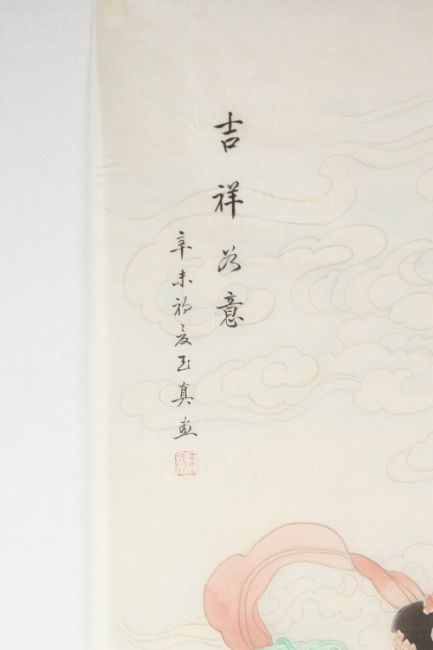 吉祥如意
辛未初夏玉真画